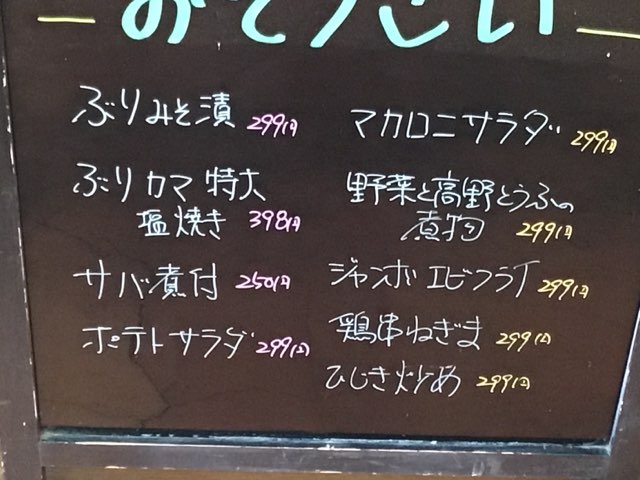 おそうざい
ぶりみそ漬 299円
ぶりカマ 特大
塩焼き 398円
サバ煮付 250円
ポテトサラダ 299円
マカロニサラダ 299円
野菜と高野とうふの
煮物 299円
ジャンボエビフライ 299円
鶏串ねぎま 299円
ひじき炒め 299円